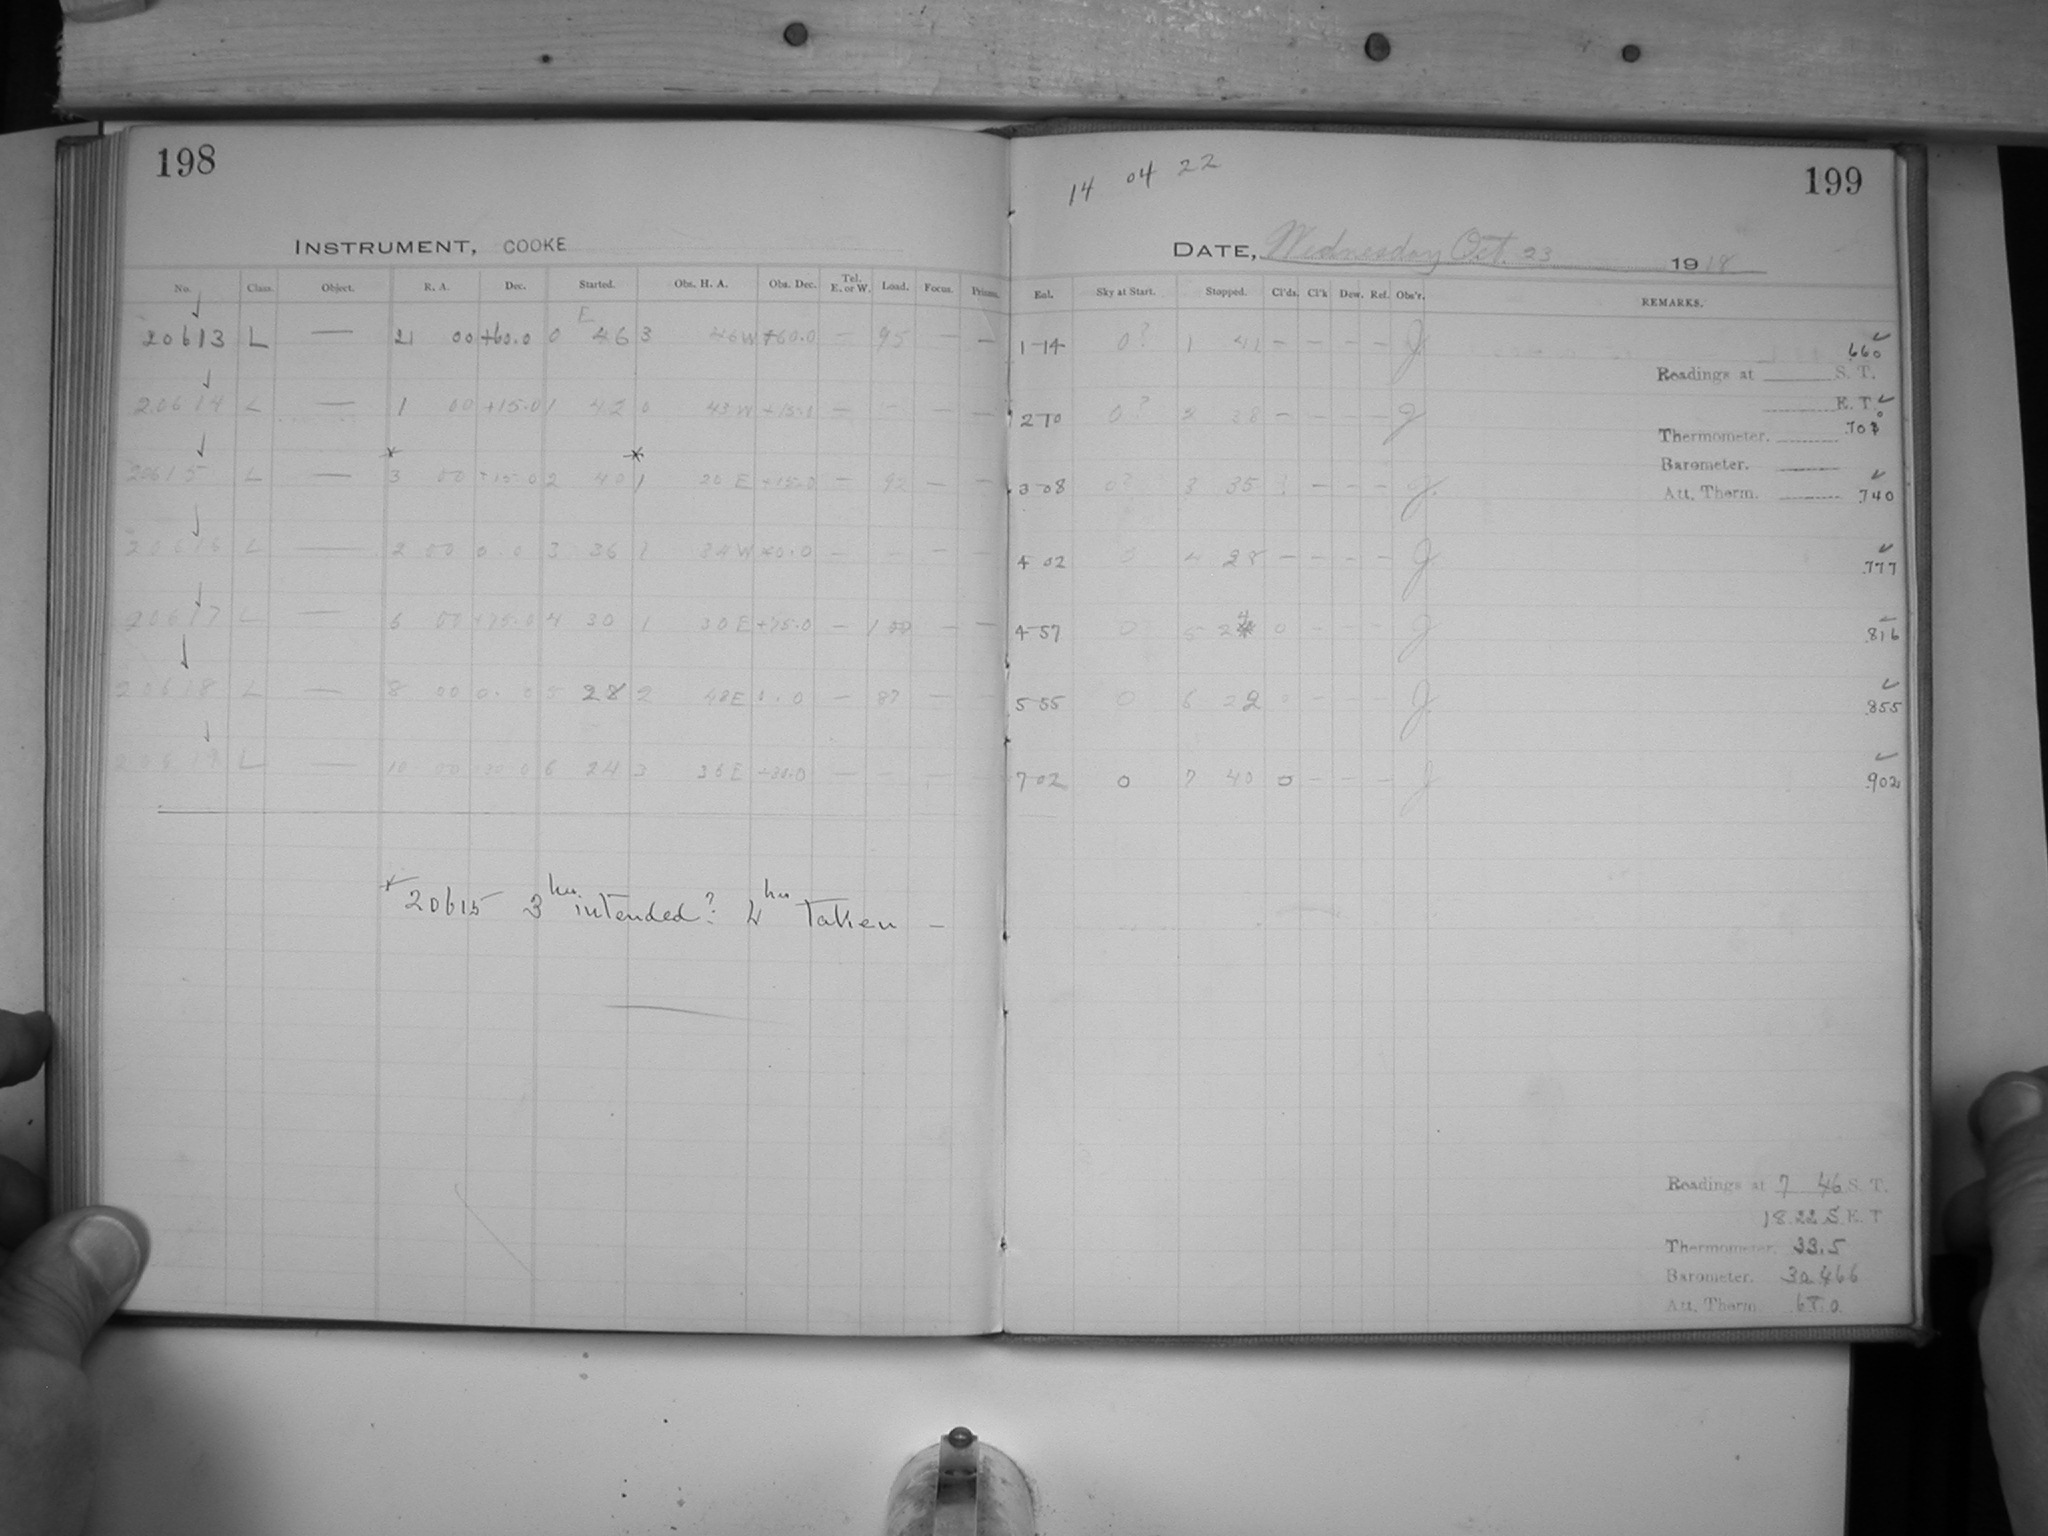 198
INSTRUMENT, COOKE
No. Class. Object. R. A. Dec. Started. Obs. H. A. Obs. Dec. Tel. E. or W. Load. Focus. Prisms.
E
20613 L — 21 00 +60.0 0 46 3 46 W +60.0 — 95 — —
20614 L — 1 00 +15.0 1 42 0 43 W +15.0 — — — —
20615 L — 3 00 +15.0 2 40 1 20 E +15.0 — 92 — —
20616 L — 2 00 0.0 3 36 1 34 W +0.0 — — — —
20617 L — 6 00 +75.0 4 30 1 30 E +75.0 — 100 — —
20618 L — 8 00 0.0 5 28 2 48 E 0.0 — 87 — —
20619 L — 10 00 +30.0 6 24 3 36 E +30.0 — — — —
* 20615 3 hrs intended? 4 hrs taken —
14 04 22
199
DATE, Wednesday Oct. 23 1918
Exl. Sky at Start. Stopped. Cl'ds. Cl'k Dew. Ref. Obs'r. REMARKS.
1-14 0? 1 41 — — — — J .660
Readings at S. T.
E. T.
2 10 0? 2 38 — — — — J .703
Thermometer.
Barometer.
3-08 0? 3 35 — — — J. .740
Att. Therm.
4 02 0 4 28 — — — — J .777
4-57 0 5 24 0 — — — J .816
5-55 0 6 22 — — — J .855
7-02 0 7 40 0 — — — J .902
Readings at 7 46 S. T.
18 22 5 E. T
Thermometer. 33.5
Barometer. 30.466
Att. Therm.